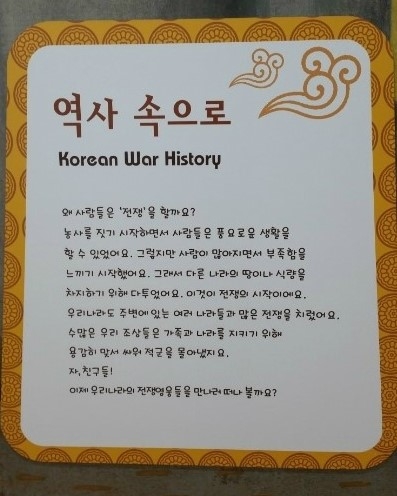 역사 속으로
Korean War History
왜 사람들은 '전쟁'을 할까요?
농사를 짓기 시작하면서 사람들은 풍요로운 생활을
할 수 있었어요. 그렇지만 사람이 많아지면서 부족함을
느끼기 시작했어요. 그래서 다른 나라의 땅이나 식량을
차지하기 위해 다투었어요. 이것이 전쟁의 시작이에요.
우리나라도 주변에 있는 여러 나라들과 많은 전쟁을 치렀어요.
수많은 우리 조상들은 가족과 나라를 지키기 위해
용감히 맞서 싸워 적군을 몰아냈지요.
자,친구들!
이제 우리나라의 전쟁영웅들을 만나러 떠나 볼까요?